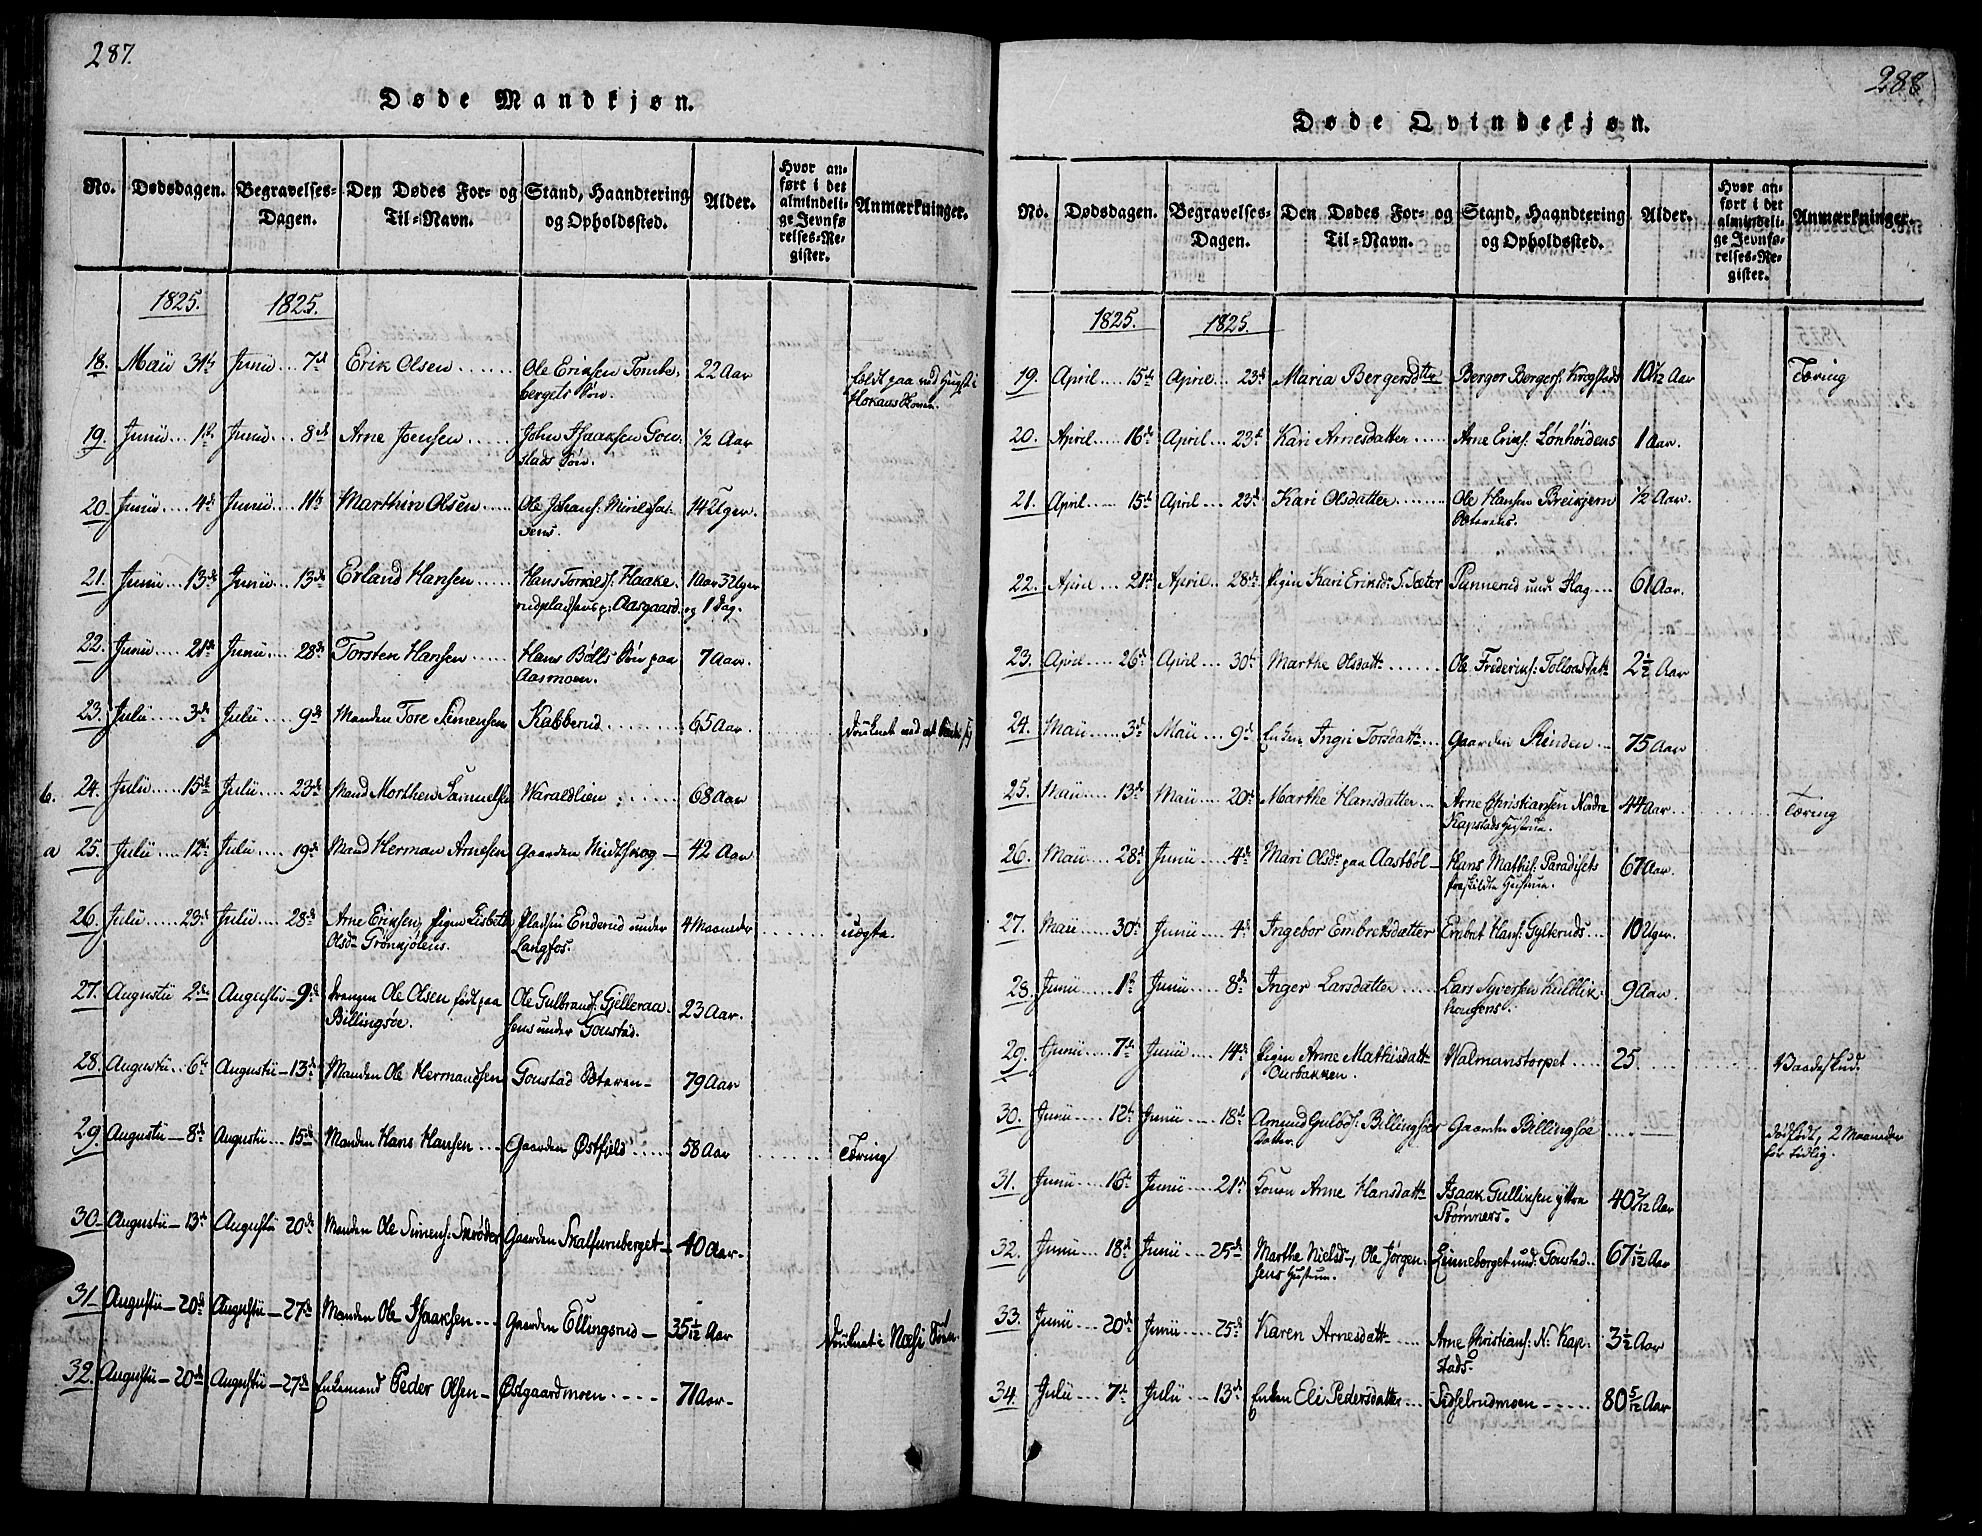 287.
Døde Mandkjøn.
No. Dødsdagen. Begravelses-Dagen. Den Dødes For- og Til-Navn. Stand, Haandtering og Opholdssted. Alder. Hvor anført i det almindelige Jevnførelses-Register. Anmærkninger.
1825. 1825.
18. Maii 31th Junii 7de Erik Olsen Ole Eriksen 22 Aar
bergets Søn.
19. Junii 1st Junii 8de Arne Jonsen John Isaaksen Gou- 1/2 Aar
stads Søn.
20. Junii 4de Junii 11th Marthin Olsen Ole Johans: 14 Uger.
21. Junii 13de Junii 13de Erland Hansen Hans Torkilds: Haake- 1 Aar 3 Uger
Aasgaard og 1 Dag.
22. Junii 21de Junii 28de Torsten Hansen Hans Bølls Søn paa 7 Aar.
Aasmoen.
23. Julii 3de Julii 9de Manden Tore Simensen Kabberud 65 Aar. druknet ved et
b. 24. Julii 15de Julii 23de Mand Morthen Samuelsen Waraldlien 68 Aar
a 25. Julii 12te Julii 19de Mand Herman Arnesen Gaarden Midtskog 42 Aar
26. Julii 23de Julii 28de Arne Eriksen, Pigen Lisbeth Pladsen Enderud under 4 Maaneder uægte.
Olsdr Grønkjølens. Langfos.
27. Augustii 2de Augustii 9de Drengen Ole Olsen født paa Ole Gulbrands: Gjelleraa- 23 Aar.
Billingsøe. sens under Goustad.
28. Augustii 6te Augustii 13de Manden Ole Hermandsen Goustad Østaaen 79 Aar
29. Augustii 8de Augustii 15de Manden Hans Hansen Gaarden Østfjeld 58 Aar Tæring
30 Augustii 13de Augustii 20de Manden Ole Simens: Skrøder Gaarden Skalfurnberget 40 Aar
31 Augustii 20de Augustii 27de Manden Ole Isaaksen Gaarden Ellingsrud 35 1/12 Aar druknet i
32. Augustii 20de Augustii 27de Enkemand Peder Olsen Østgaardmoen 71 Aar
288
Døde Qvindekjøn.
No. Dødsdagen. Begravelses-Dagen. Den Dødes For- og Til-Navn. Stand, Haandtering og Opholdssted. Alder. Hvor anført i det almindelige Jevnførelses-Register. Anmærkninger.
1825. 1825.
19. April 15de April 23de Maria Bergersdtr Berger Bergers: Krogstads 10 1/12 Aar Tæring
20. April 16de April 23de Kari Arnesdatter Arne Eriks: Lønhøidens 1 Aar.
21. April 15de April 23de Kari Olsdatter Ole Hansen 1/2 Aar
22. April 21de April 28de Pigen Kari Eriksdr Pannerud und: Hag 61 Aar.
23. April 26de April 30te Marthe Olsdatt Ole Frederiks: 2 1/2 Aar
24. Maii 3de Maii 9de Enken Ingri Torsdatt Gaarden Rinden 75 Aar
25. Maii 13de Maii 20de Marthe Hansdatter Arne Christiansen Nedre 44 Aar Tæring
Kapstads Hustrue.
26. Maii 28de Junii 4de Mari Olsdr paa Aastbøl Hans Mathis: Paradisets 67 Aar.
fraskildte Hustrue.
27. Maii 30te Junii 4de Ingebor Embretsdatter Embret Hans: Gylteruds 10 Uger.
28. Junii 1st Junii 8de Inger Larsdatter Lars Syversen Kulblik- 9 Aar
hougens.
29. Junii 7de Junii 14de Pigen Arne Mathisdatt Walmanstorpet 25. Vaadeskud.
Ourbakken.
30. Junii 12te Junii 18de Amund Gulbds: Billingsøes Gaarden Billingsøe dødfødt, 2 Maaneder
Datter. for tidlig.
31. Junii 16de Junii 21de Konen Arne Hansdatt Isaak Gulliksen ytre 40 2/12 Aar
Strømners.
32. Junii 18de Junii 25de Marthe Nielsd, Ole Jørgen- Linneberget und: Goustad 67 1/12 Aar
sens Hustrue.
33. Junii 20de Junii 25de Karen Arnesdatt Arne Christians: N: Kap- 3 1/2 Aar
stads.
34. Julii 7de Julii 13de Enken Eli Pedersdatter Sidselrudmoen 80 5/12 Aar